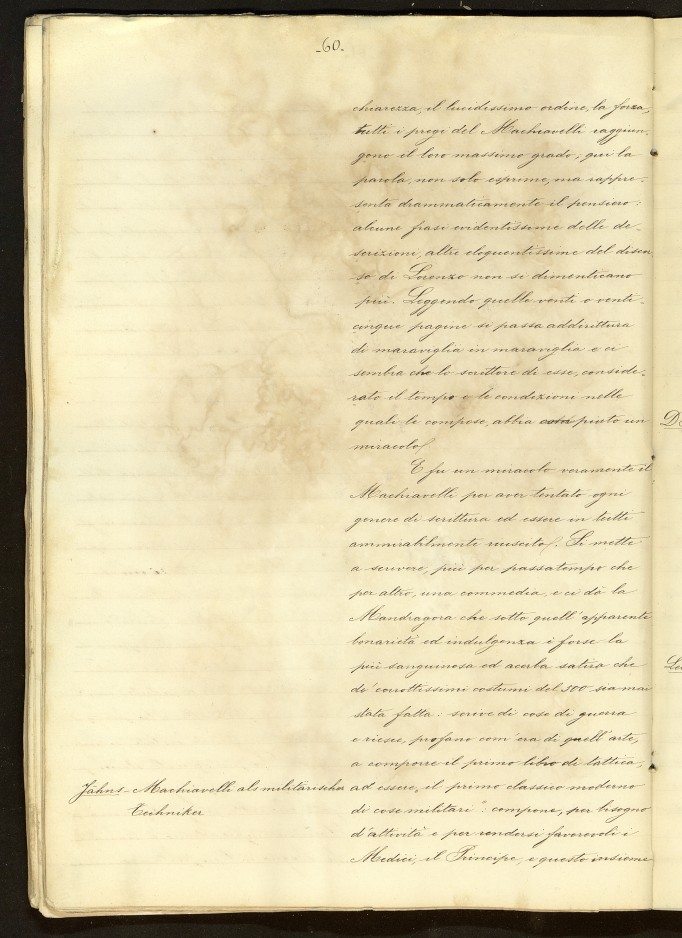 -60-
chiarezza, il lucidissimo ordine, la forza,
tutti i pregi del Machiavelli raggiun-
gono il loro massimo grado; qui la
parola, non solo esprime, ma rappre-
senta drammaticamente il pensiero:
alcune frasi evidentissime delle de-
scrizioni, altre eloquentissime del discor
so di Lorenzo non si dimenticano
più. Leggendo quelle venti o venti-
cinque pagine si passa addirittura
di maraviglia in maraviglia e ci
sembra che lo scrittore di esse, conside-
rato il tempo e le condizioni nelle
quali le compose, abbia compiuto un
miracolo.
E fu un miracolo veramente il
Machiavelli per aver tentato ogni
genere di scrittura ed essere in tutti
ammirabilmente riuscito. Si mette
a scrivere, più per passatempo che
per altro, una commedia, e ci dà la
Mandragora che sotto quell'apparente
bonarietà ed indulgenza è forse la
più sanguinosa ed acerba satira che
di' corrottissimi costumi del 500 sia mai
stata fatta: scrive di cose di guerra
e riesce, profano com'era di quell'arte,
a comporre il primo libro di tattica,
Jähns - Machiavelli als militärischer
Techniker
ad essere, il primo classico moderno
di cose militari": compone, per bisogno
d'attività e per rendersi favorevoli i
Medici, il Principe, e questo insieme